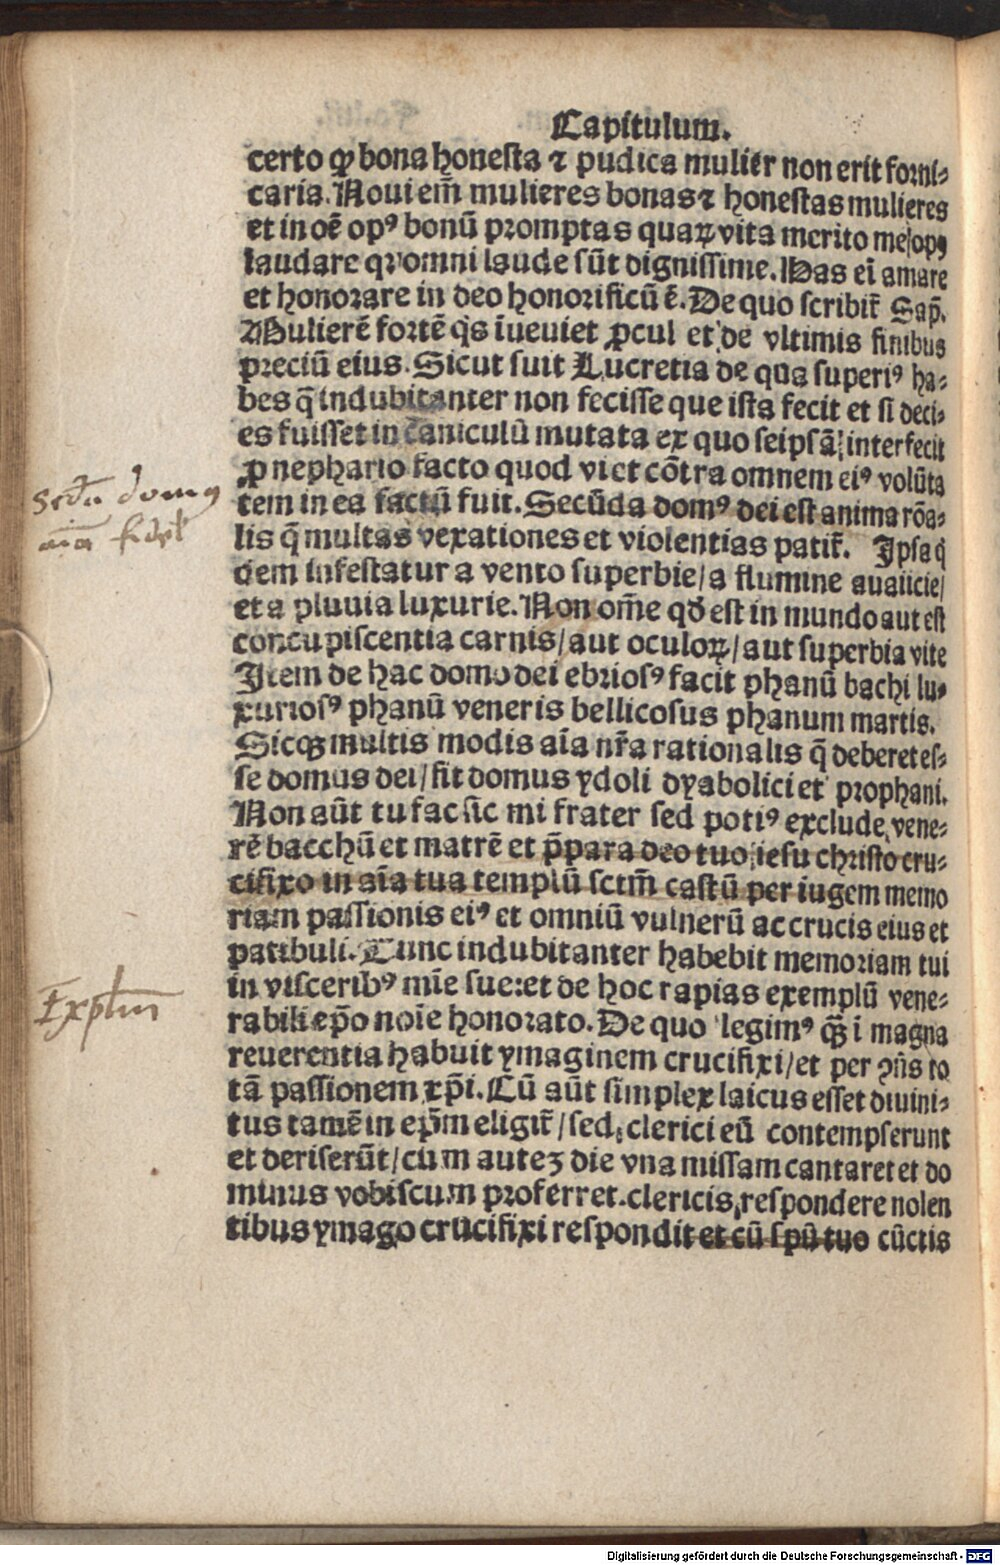 Capitulum.
certo ꝙ bona honesta ⁊ pudica mulier non erit forni⸗
caria. Noui em̃ mulieres bonas ⁊ honestas mulieres
et in oẽ opꝰ bonũ promptas quaꝝ vita merito me opꝫ
laudare qr omni laude sũt dignissime. Has eĩ amare
et honorare in deo honorificũ ẽ. De quo scribit̃ Sap̃.
Mulierẽ fortẽ q̃s ĩueuiet ꝓcul et de vltimis finibus
preciũ eius. Sicut fuit Lucretia de qua superiꝰ ha⸗
bes q̃ indubitanter non fecisse que ista fecit et si deci⸗
es fuisset in caniculũ mutata ex quo seipsã interfecit
ꝓ nephario facto quod vi et cõtra omnem eiꝰ volũta
tem in ea factũ fuit. Secũda domꝰ dei est anima rõa⸗
lis q̃ multas vexationes et violentias patit̃. Ipsa q̇
dem infestatur a vento superbie/ a flumine auaricie/
et a pluuia luxurie. Non om̃e qd̃ est in mundo aut est
concupiscentia carnis/ aut oculoꝝ/ aut superbia vite
Item de hac domo dei ebriosꝰ facit phanũ bachi lu⸗
xuriosꝰ phanũ veneris bellicosus phanum martis.
Sicqꝫ multis modis aĩa nr̃a rationalis q̃ deberet es⸗
se domus dei/ fit domus ydoli dyabolici et prophani.
Non aũt tu fac sic mi frater sed potiꝰ exclude vene⸗
rẽ bacchũ et matrẽ et p̃para deo tuo iesu christo cru⸗
cifixo in aĩa tua templũ sctm̃ castũ per iugem memo
riam passionis eiꝰ et omniũ vulnerũ ac crucis eius et
patibuli. Tunc indubitanter habebit memoriam tui
in visceribꝰ mĩe sue: et de hoc rapias exemplũ vene⸗
rabili ep̃o noĩe honorato. De quo legimꝰ ꝙ ĩ magna
reuerentia habuit ymaginem crucifixi/ et per ꝯñs to
tã passionem xp̃i. Cũ aũt simplex laicus esset diuini⸗
tus tamẽ in ep̃m eligit̃/ sed clerici eũ contempserunt
et deriserũt/ cum auteꝫ die vna missam cantaret et do
minus vobiscum proferret. clericis respondere nolen
tibus ymago crucifixi respondit et cũ spũ tuo cũctis
Scd̃a domꝰ
aĩa fidel
Explum
Digitalisierung gefördert durch die Deutsche Forschungsgemeinschaft - DFG